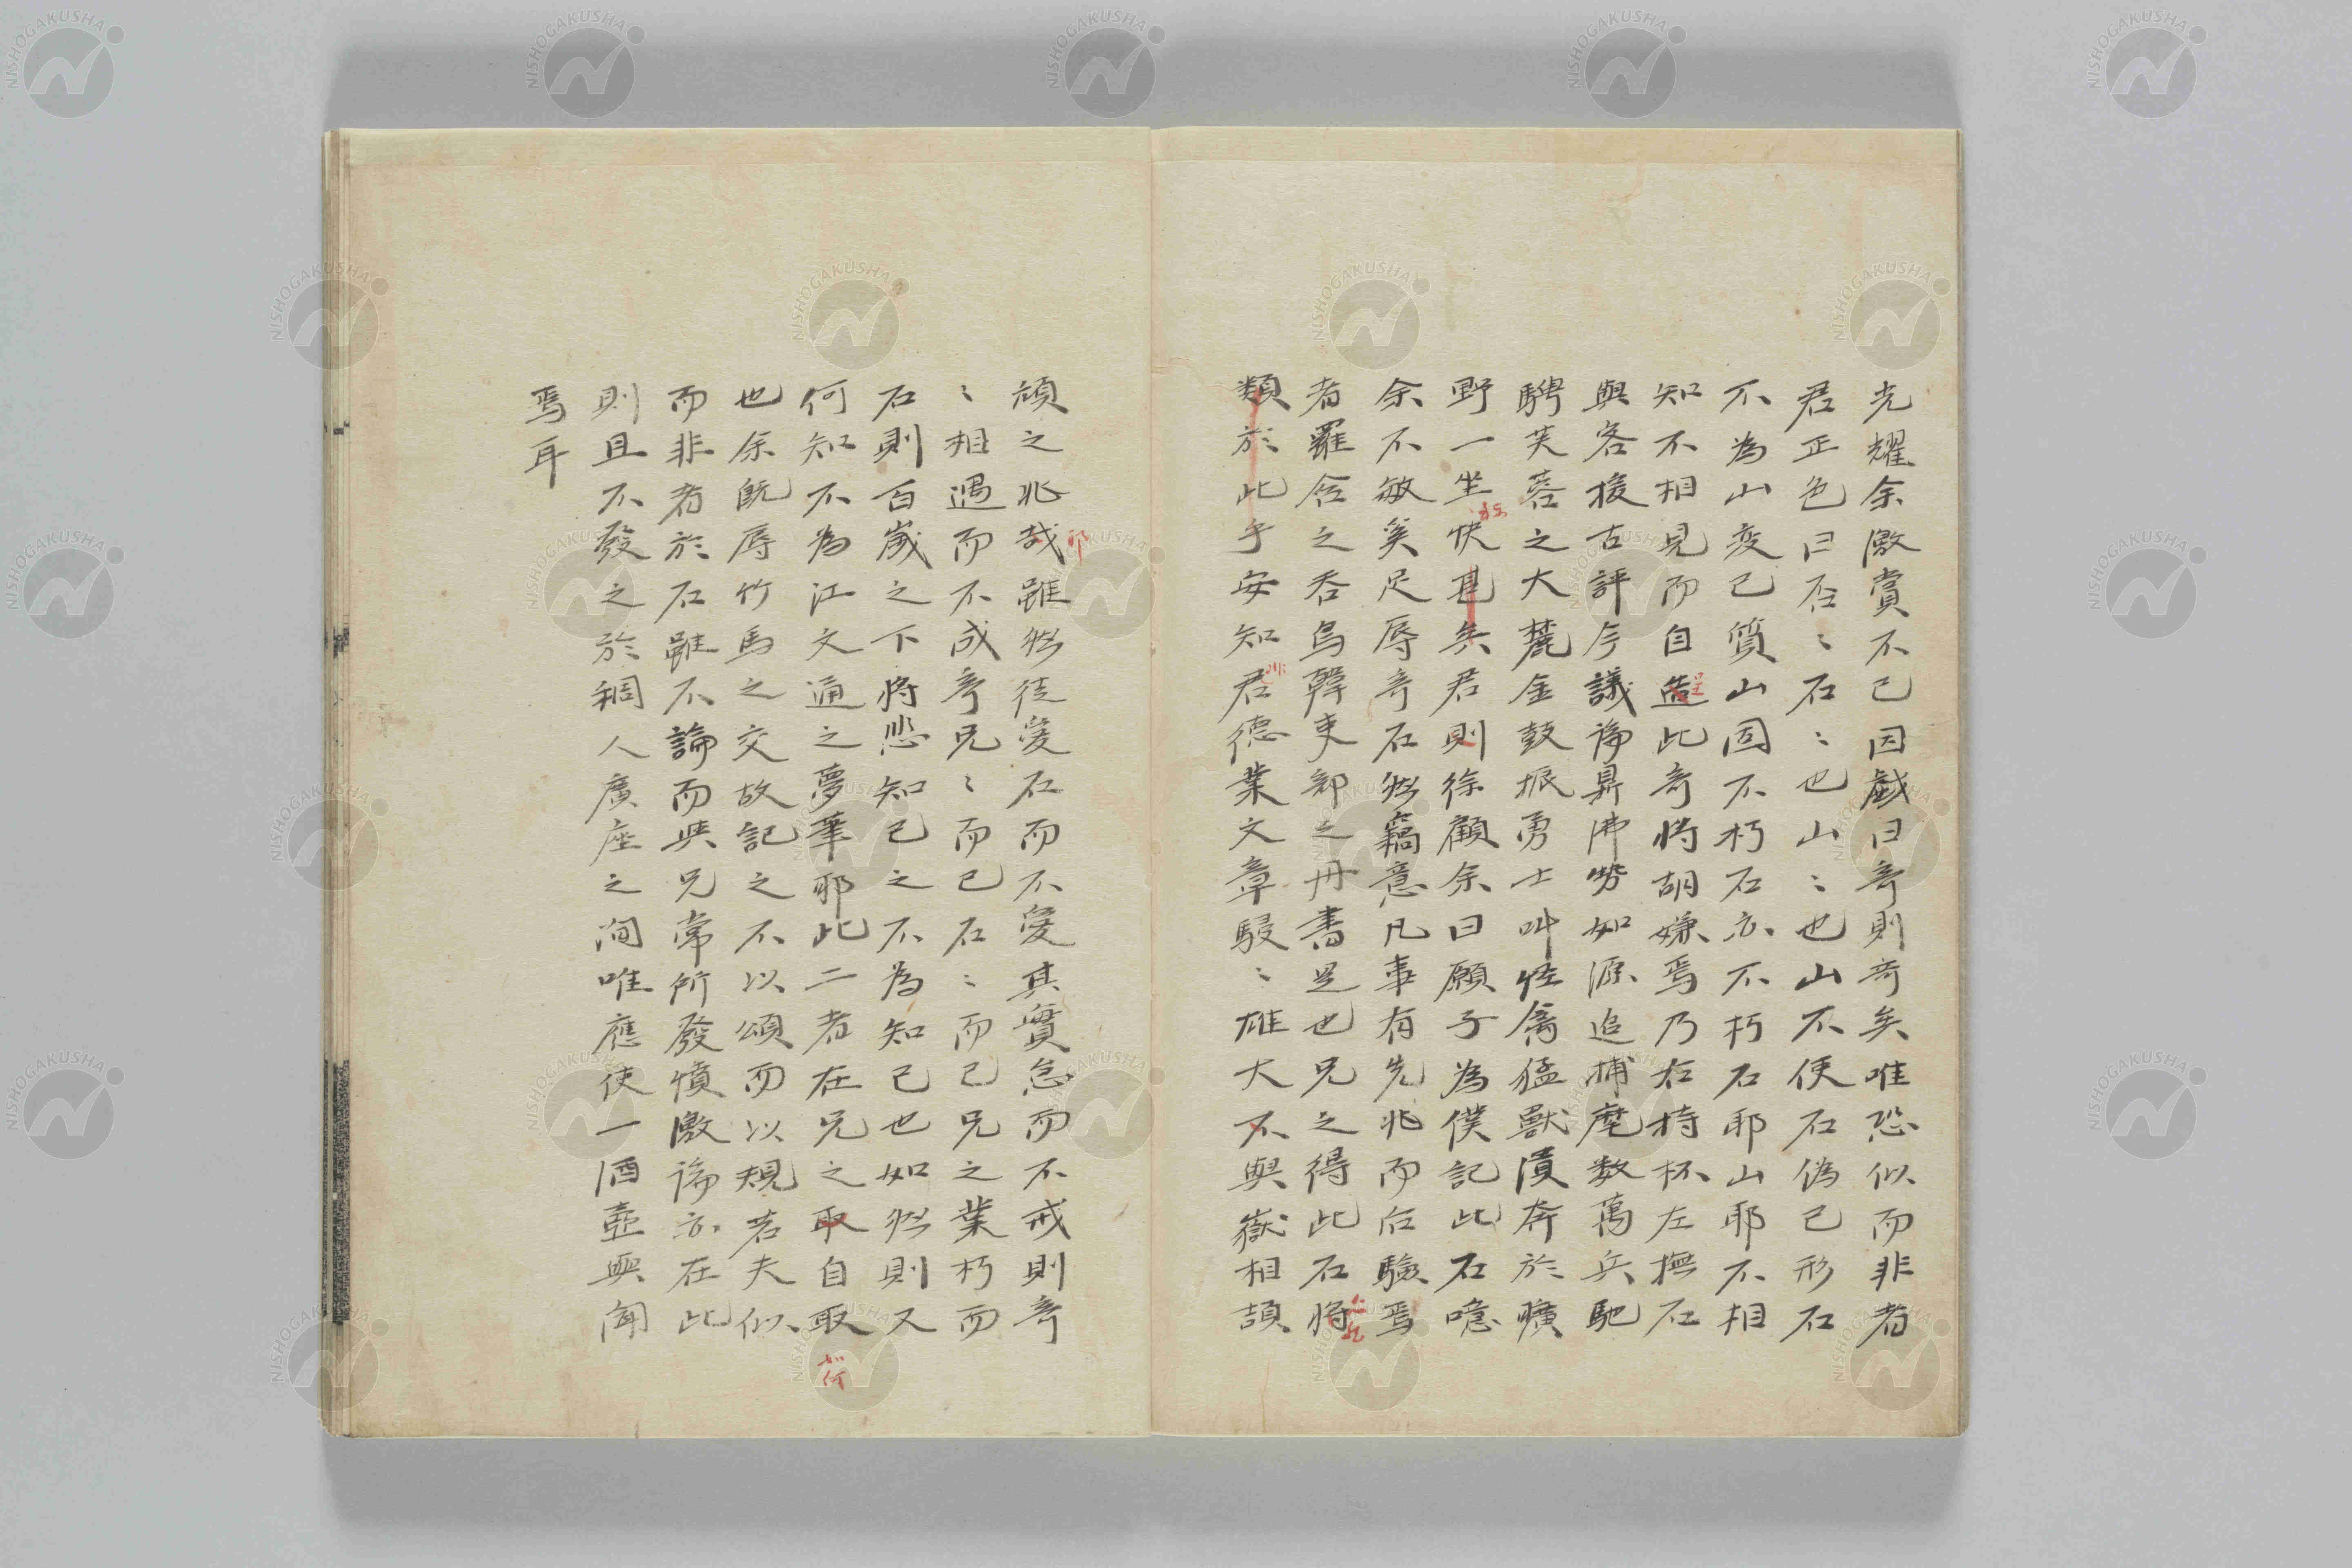 光耀余激賞不已因戯曰奇則奇矣唯恐似而非者
君正色曰否〻石〻也山〻也山不便石偽己形石
不為山変己質山固不朽石亦不朽石耶山耶不相
知不相見而自造此奇将胡嫌焉乃右持杯左撫石
與客援古評今議論鼎沸勢如源追捕麾数萬兵馳
騁芙蓉之大麓金鼓振勇士叫怪禽猛獣潰奔於曠
野一坐快甚矣君則徐顧余曰願子為僕記此石噫
余不敏奚足辱奇石然竊意凡事有先兆而后驗焉
者羅含之呑鳥韓吏部之丹書是也兄之得此石将
類於此乎安知君德業文章駸〻雄大不與嶽相頡
頏之兆哉雖然徒愛石而不愛其實怠而不戒則奇
〻相遇而不成奇兄〻而已石〻而已兄之業朽而
石則百歳之下将悲知己之不為知己也如然則又
何知不為江文通之夢筆耶此二者在兄之取自取
也余既辱竹馬之交故記之不以頌而以規若夫似
而非者於石雖不論而與兄常所發憤激論亦在此
則且不發之於稠人廣座之間唯應使一酒壺與聞
焉耳
耶
非
如何